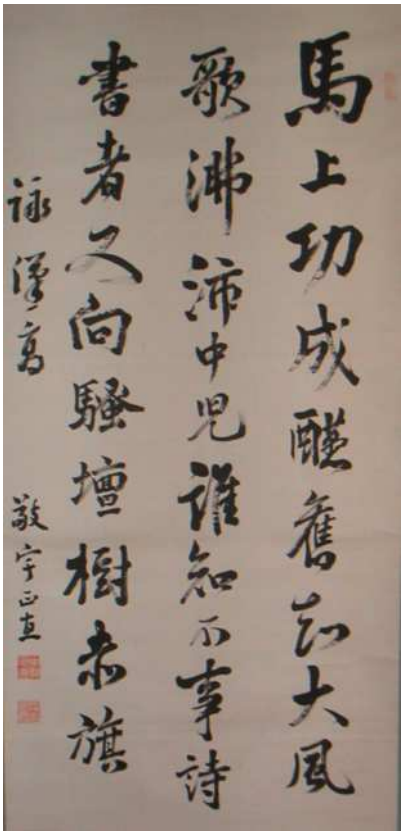 馬上功成醼舊知大風
歌沸沛中児誰知不事詩
書者又向騷壇樹赤旗
詠漢高 敬宇正直